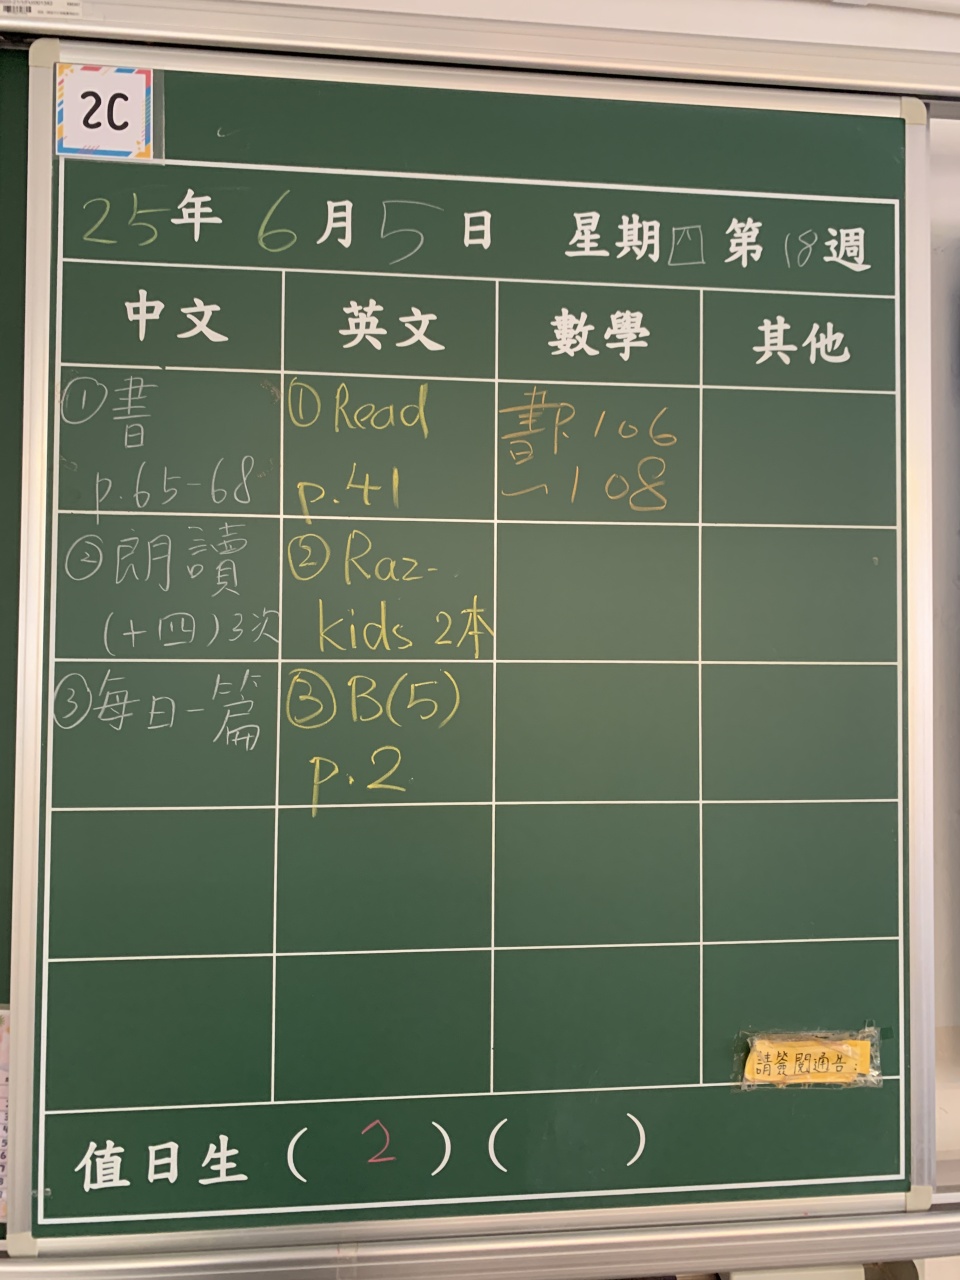 2C
25年 6月 5日 星期四 第18週
中文 英文 數學 其他
①書
p.65-68
①Read
p.41
書P.106
-108
②朗讀
(十四)3次
②Raz-
kids 2本
③每日一篇
③B(5)
p.2
請簽閱通告:
值日生 ( 2 ) ( )